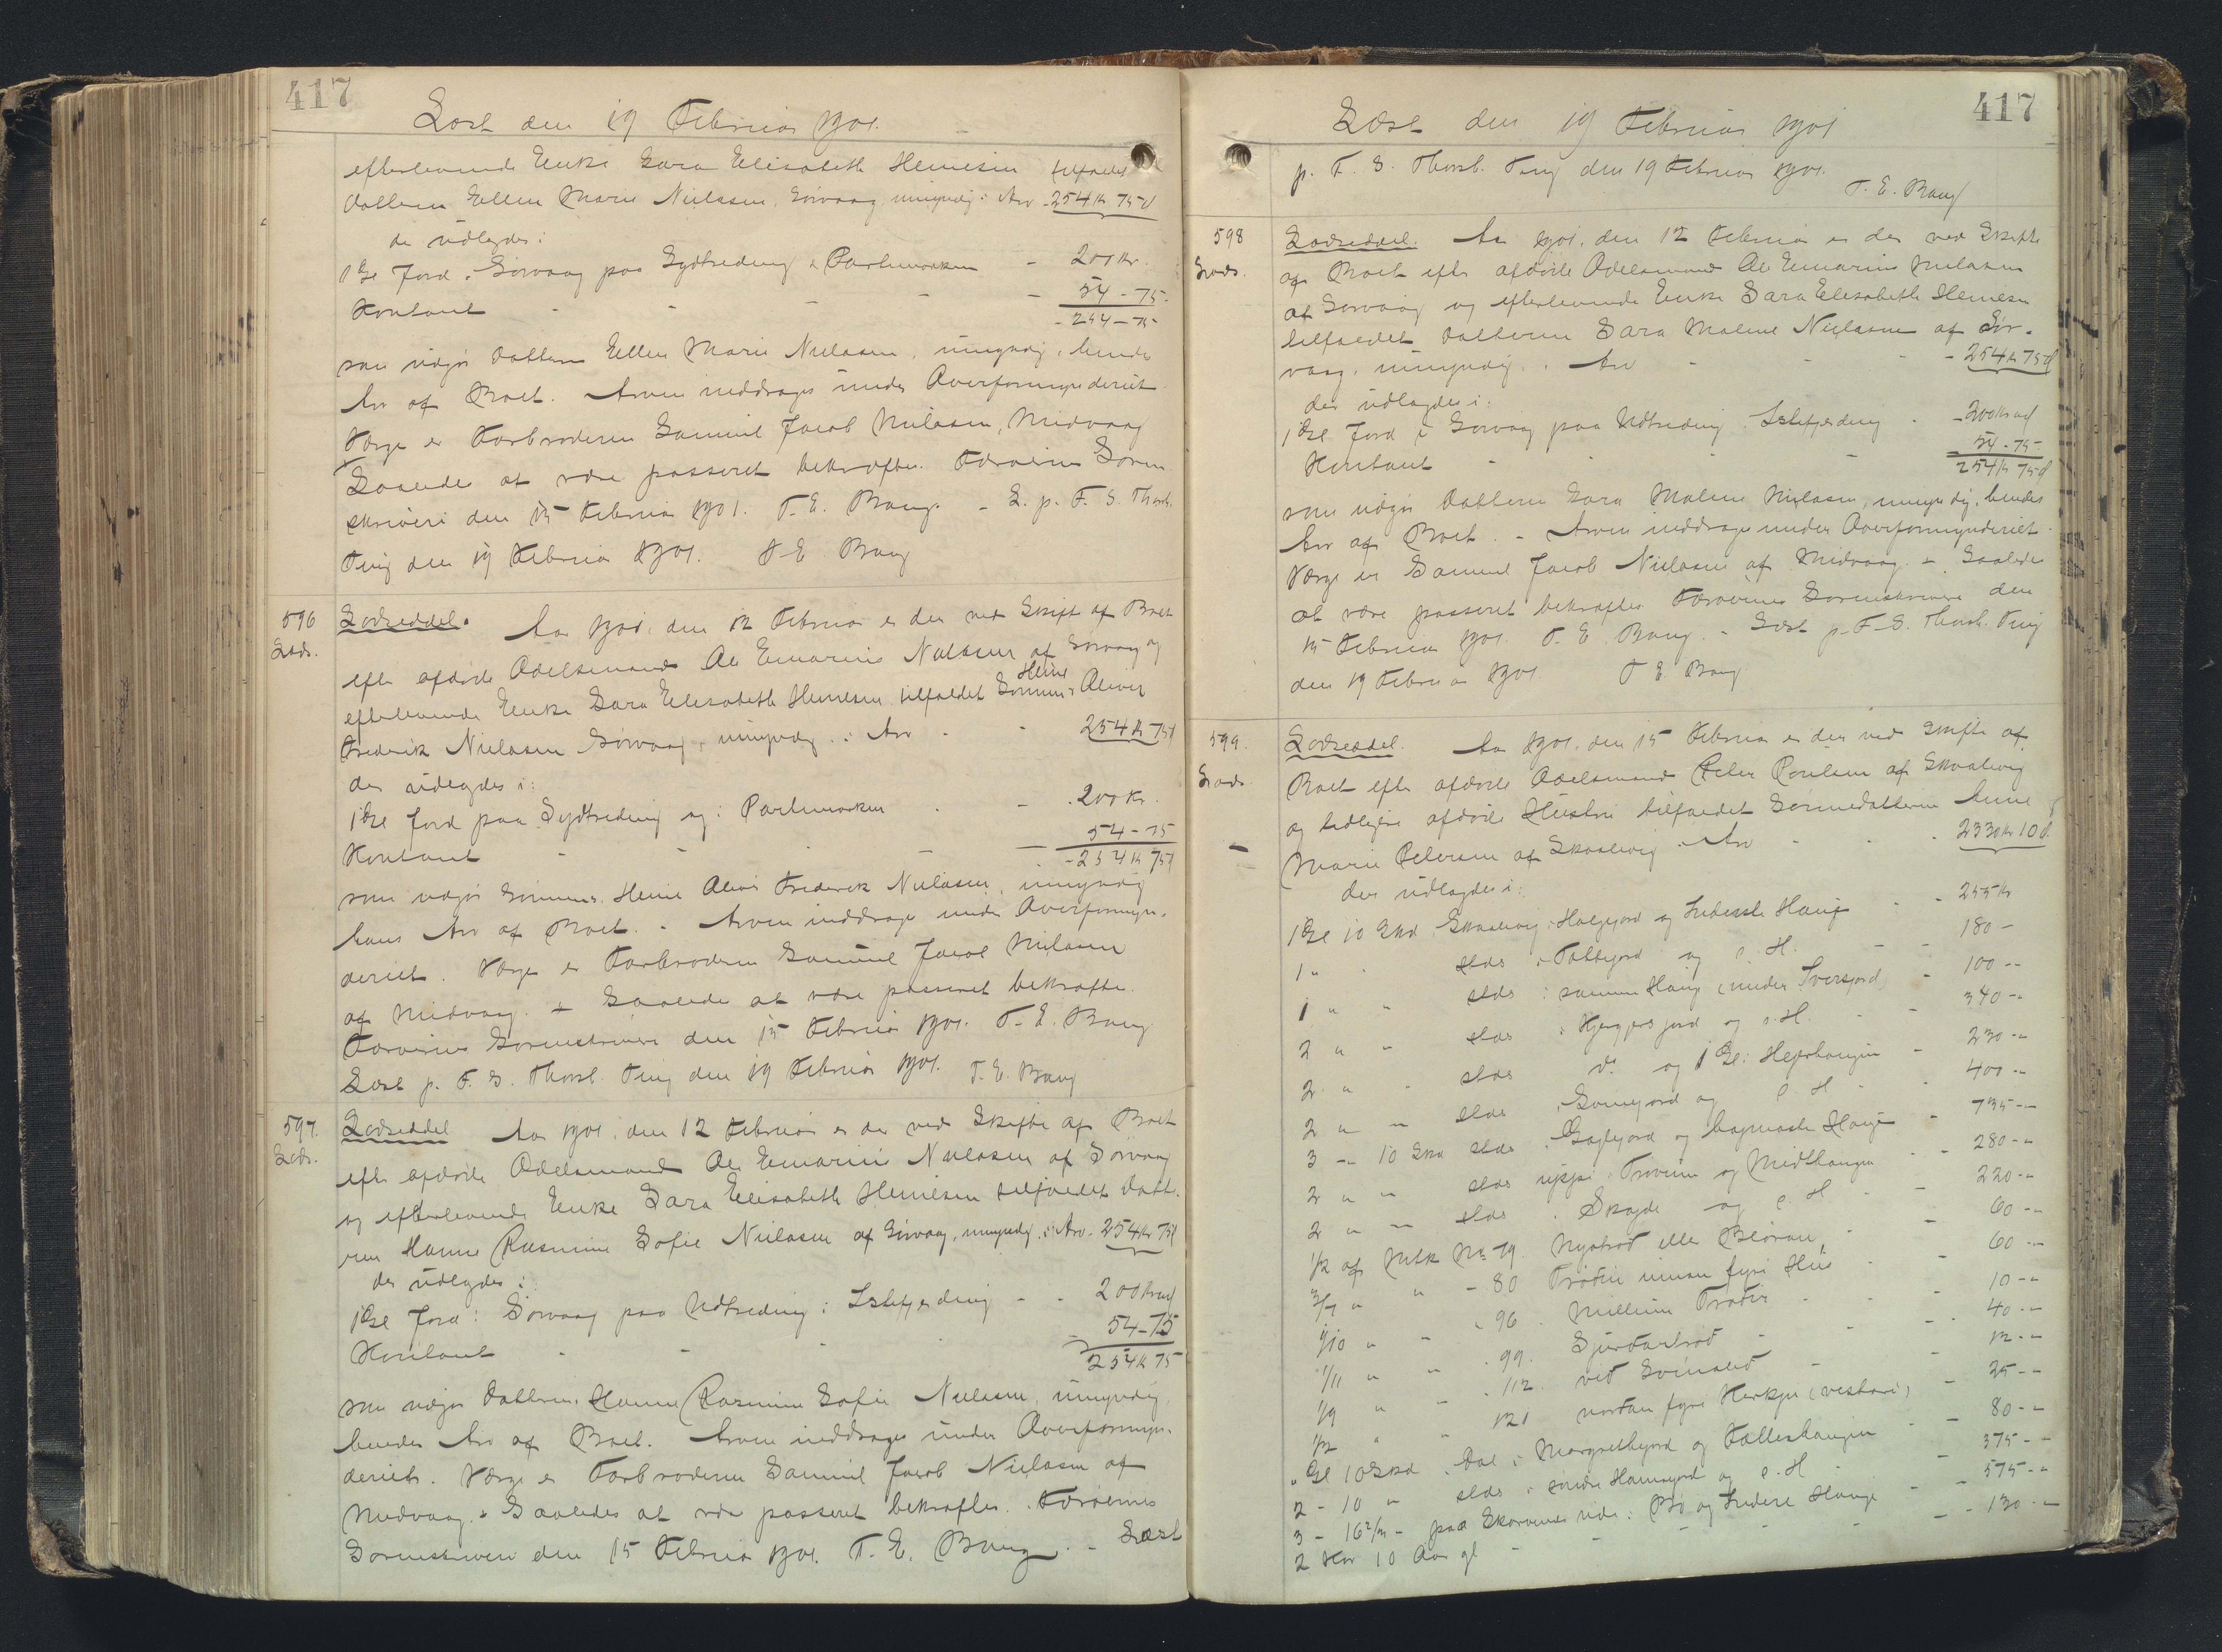 417
Læst den 19 Februar 1901.
efterlevende Enke Sara Elisabeth Heinesen tilfaldet
Datteren Ellen Marie Nielasen, Sørvaag, umyndig i Arv - 254 Kr 75 Ø
der udlagdes i:
1 Gl Jord i Sørvaag paa Sydtræding i Partmarken - 200 Kr.
Kontant - - - - 54 - 75 -
- 254 - 75 -
som udgør Datteren Ellen Marie Nielasen, umyndig, hendes
Arv af Boet. Arven inddrages under Overformynderiet
Værge er Farbroderen Samuel Jacob Nielasen, Midvaag
Saaledes at være passeret bekræftes. Færøernes Soren
skriveri den 15 Februar 1901. T. E. Bang. - L. p. F. S. Thorsh.
Ting den 19 Februar 1901. T. E. Bang
596
Lods.
Lodseddel. Aar 1901, den 12 Februar er der ved Skifte af Boet
efter afdøde Odelsmand Ole Emarius Nielasen af Sørvaag og
efterlevende Enke Sara Elisabeth Heinesen tilfaldet Sønnen Heine Oliver
Frederik Nielasen Sørvaag, umyndig, i Arv - - 254 Kr 75 Ø
der udlagdes i:
1 Gl Jord paa Sydtræding og i Partmarken - 200 Kr.
Kontant - - - - 54 - 75
- 254 Kr 75 Ø
som udgør Sønnens Heine Oliver Frederik Nielasen, umyndig
hans Arv af Boet. - Arven inddrages under Overformyn-
deriet. Værge er Farbroderen Samuel Jacob Nielasen
af Midvaag. - Saaledes at være passeret bekræftes.
Færøernes Sorenskriveri den 15 Februar 1901. T. E. Bang
Læst p. F. S. Thorsh. Ting den 19 Februar 1901. T. E. Bang
597.
Lods.
Lodseddel Aar 1901, den 12 Februar er der ved Skifte af Boet
efter afdøde Odelsmand Ole Emarius Nielasen af Sørvaag
og efterlevende Enke Sara Elisabeth Heinesen tilfaldet Datt-
eren Hanne Rasmine Sofie Nielasen af Sørvaag, umyndig, i Arv - 254 Kr 75 Ø
der udlagdes i:
1 Gl Jord i Sørvaag paa Udtræding i - - 200 Kr
Kontant - - - 54 - 75
254 Kr 75
som udgør Datteren, Hanne Rasmine Sofie Nielasen, umyndig,
hendes Arv af Boet. Arven inddrages under Overformyn-
deriet. Værge er Farbroderen Samuel Jacob Nielasen af
Midvaag. - Saaledes at være passeret bekræftes. Færøernes
Sorenskriveri den 15 Februar 1901. T. E. Bang. - Læst
417
Læst den 19 Februar 1901
p. F. S. Thorsh. Ting den 19 Februar 1901.
T. E. Bang
598
Lods.
Lodseddel. Aar 1901, den 12 Februar er der ved Skifte
af Boet efter afdøde Odelsmand Ole Emarius Nielasen
af Sørvaag og efterlevende Enke Sara Elisabeth Heinesen
tilfaldet Datteren Sara Malene Nielasen af Sør-
vaag, umyndig, i Arv - - - 254 Kr 75 Ø
der udlagdes i:
1 Gl Jord i Sørvaag paa Udtræding - 200 Kr
Kontant - - - - 54 - 75
254 Kr 75 Ø
som udgør Datteren Sara Malene Nielasen, umyndig, hendes
Arv af Boet. - Arven inddrages under Overformynderiet.
Værge er Samuel Jacob Nielasen af Midvaag. - Saaledes
at være passeret bekræftes Færøernes Sorenskriveri den
15 Februar 1901. T. E. Bang. - Læst p. F. S. Thorsh. Ting
den 19 Februar 1901. T. E. Bang
599.
Lods.
Lodseddel. Aar 1901, den 15 Februar er der ved Skifte af
Boet efter afdøde Odelsmand Peter Poulsen af Skaalevig
og tidligere afdøde Hustru tilfaldet Sønnedatteren Anne
Marie Petersen af Skaalevig i Arv - - 2330 Kr 10 Ø
der udlagdes i:
1 Gl 10 Skd Skaalevig i og Hauge - - 255 Kr
1 " " stds i og s. H. - - 180 -
1 " " stds i samme Haug (under - 100 - -
2 " " stds i og s. H. - - 340 - -
2 " " stds do og 1 Gl i - 230 - -
2 " " stds i og s. H - 400 - -
3 - 10 Skd stds i og Hauge - 735 - -
2 " " stds i og Midthaugen - - 280 - -
2 " " stds i og s. H - - 220 - -
1/2 af Mtk No 79 eller - - 60 - -
" " - 80 innan fyri Hus - - 60 - -
1/10 " " - 96. millum - - 10 - -
1/11 " " - 99. - - 40 - -
1/9 " " - 112. við - - 12 - -
1/12 " " 121 norðan fyri (vestari) - 25 - -
" Gl 10 Skd i Dal i og - - 80 - -
2 - 10 " stds i søndre og s. H - - 375 - -
3 - 16 2/3 - paa Skarvenes i Bø og Hauge - - 575 - -
2 Kør 10 Aar gl - - - - 130 - -